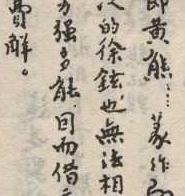 即黄熊…篆作
次的徐鉉也無法相
强多能，因而借
胃解。